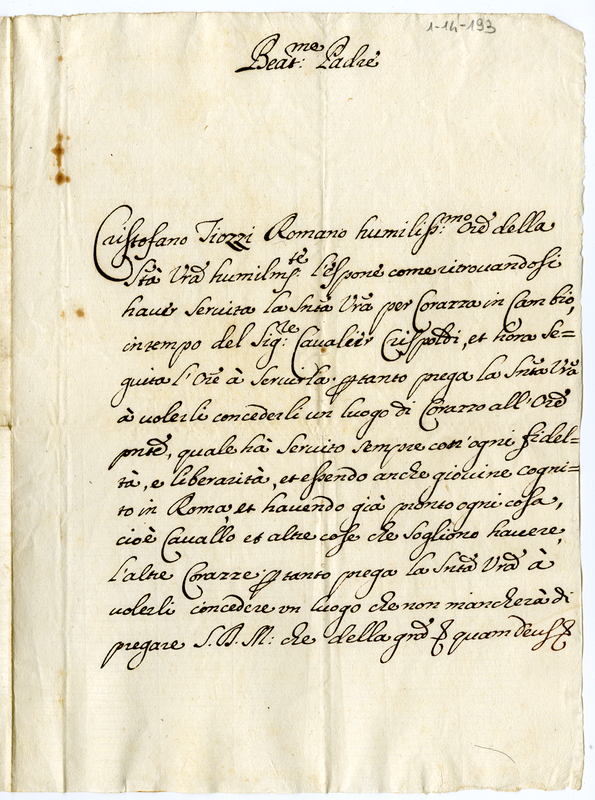 1-14-193
Beat:me Padre
Cristofano Tiozzi Romano humiliss:mo Ore della
Stà Vra humilms:te l'espone come ritrovandosi
haver servita la Sntà Vra per Corazza in Cambio,
in tempo del Sig:le Cavalier Crispoldi, et hora se=
guita l'Ore à servirla: ptanto prega la Sntà Vra
à volerli concederli un luogo di Corazzo all'Ore
pnte, quale hà servito sempre con ogni fidel=
tà, e liberarità, et essendo anche giovine cogni=
to in Roma, et havendo già pronto ogni cosa,
cioè Cavallo et altre cose che sogliono havere
l'altre Corazze: ptanto prega la Sntà Vra à
volerli concedere un luogo che non mancherà di
pregare S.D.M: che della gra quam Deus